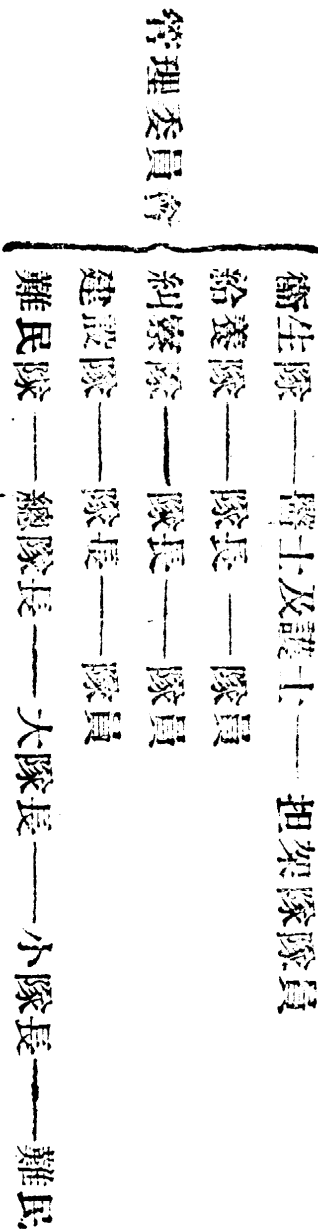 管理委員會
衞生隊——醫士及護士——担架隊隊員
給養隊——隊長——隊員
糾察隊——隊長——隊員
建設隊——隊長——隊員
難民隊——總隊長——大隊長——小隊長——難民